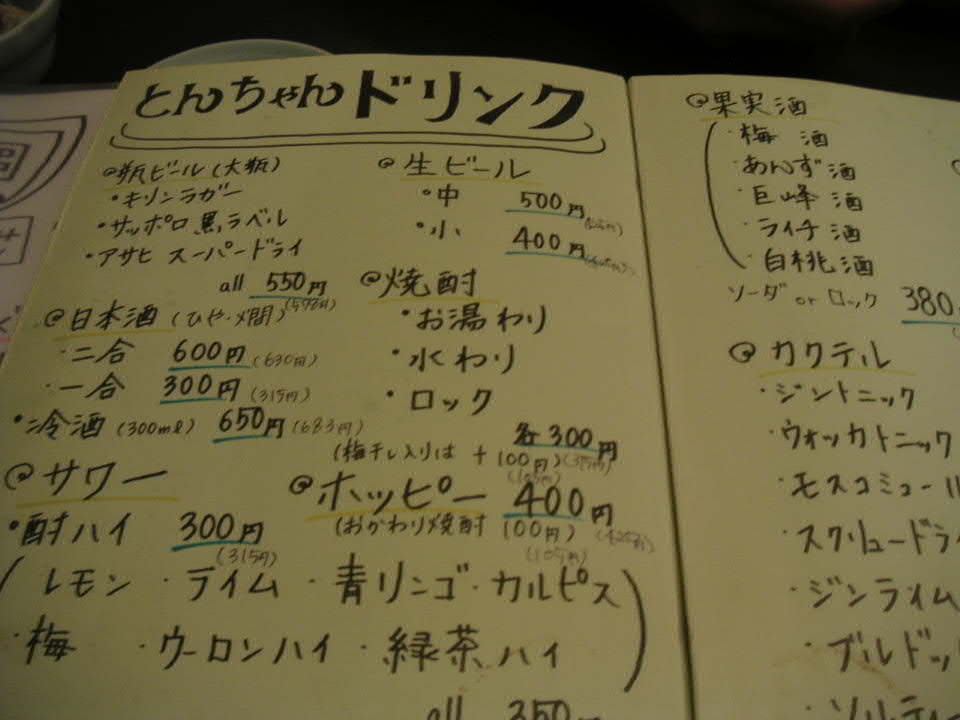 とんちゃんドリンク
◎瓶ビール(大瓶)
・キリンラガー
・サッポロ黒ラベル
・アサヒ スーパードライ
all 550円
(578円)
◎日本酒(ひや・〆間)
・二合 600円(630円)
・一合 300円(315円)
・冷酒(300ml) 650円(683円)
◎サワー
・酎ハイ 300円
(315円)
(レモン・ライム・青リンゴ・カルピス
・梅 ・ウーロンハイ・緑茶ハイ)
all 350
◎生ビール
・中 500円
・小 400円
◎焼酎
・お湯わり
・水わり
・ロック
各300円
(梅干し入りは+100円)(315円)
(105円)
◎ホッピー 400円
(おかわり焼酎 100円)(420円)
(105円)
◎果実酒
・梅酒
・あんず酒
・巨峰酒
・ライチ酒
・白桃酒
ソーダ or ロック 380
◎カクテル
・ジントニック
・ウォッカトニック
・モスコミュール
・スクリュードライ
・ジンライム
・ブルドッ
・ソルティ